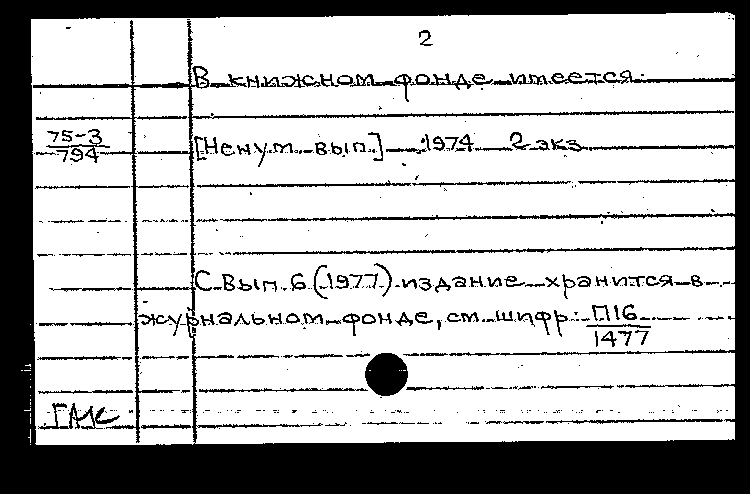 2
В книжном фонде имеется:
75-3
794
[Ненум. вып.] - 1974 2 экз
С Вып. 6 (1977) издание хранится в
журнальном фонде, см. шифр: П16
1477